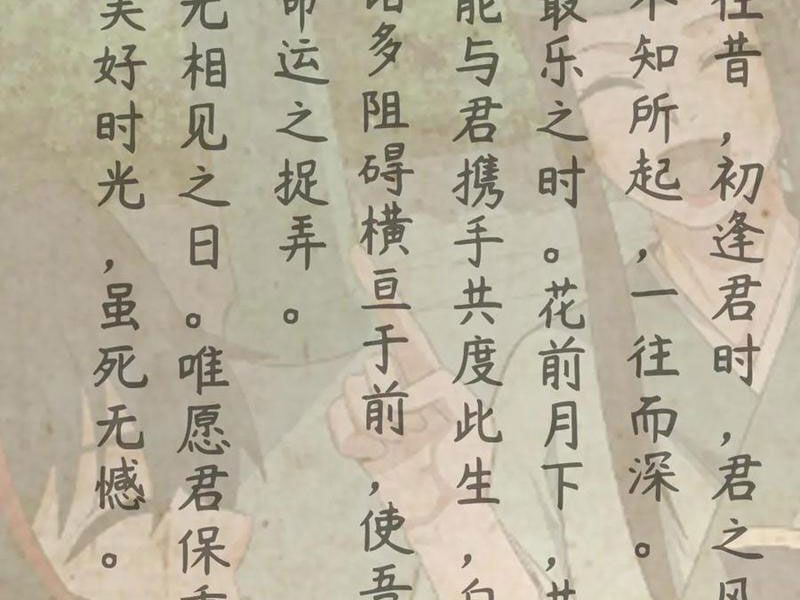 往昔，初逢君时，君之风
不知所起，一往而深。
最乐之时。花前月下，共
能与君携手共度此生，
诸多阻碍横亘于前，使吾
命运之捉弄。
无相见之日。唯愿君保重
美好时光，虽死无憾。